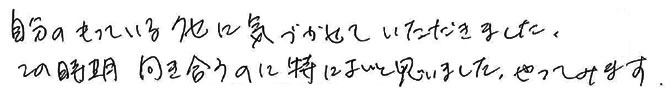 自分のもっているクセに気づかせていただきました。
この時期 向き合うのに特によいと思いました。やってみます.